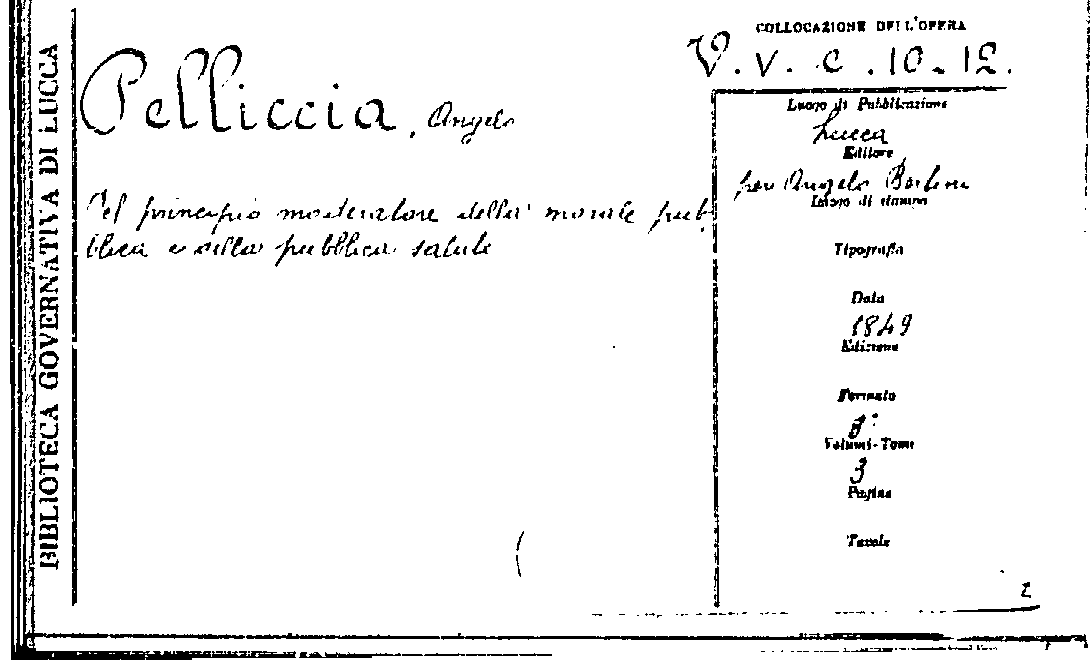 BIBLIOTECA GOVERNATIVA DI LUCCA
COLLOCAZIONE DELL'OPERA
V. V. C. 10-12.
Pelliccia, Angelo
Del principio moderatore della morale pub-
blica e della pubblica salute
Luogo di Pubblicazione
Lucca
Editore
per Angelo
Luogo di stampa
Tipografia
Data
1849
Edizione
Formato
8°
Volumi-Tomi
3
Pagine
Tavole
2